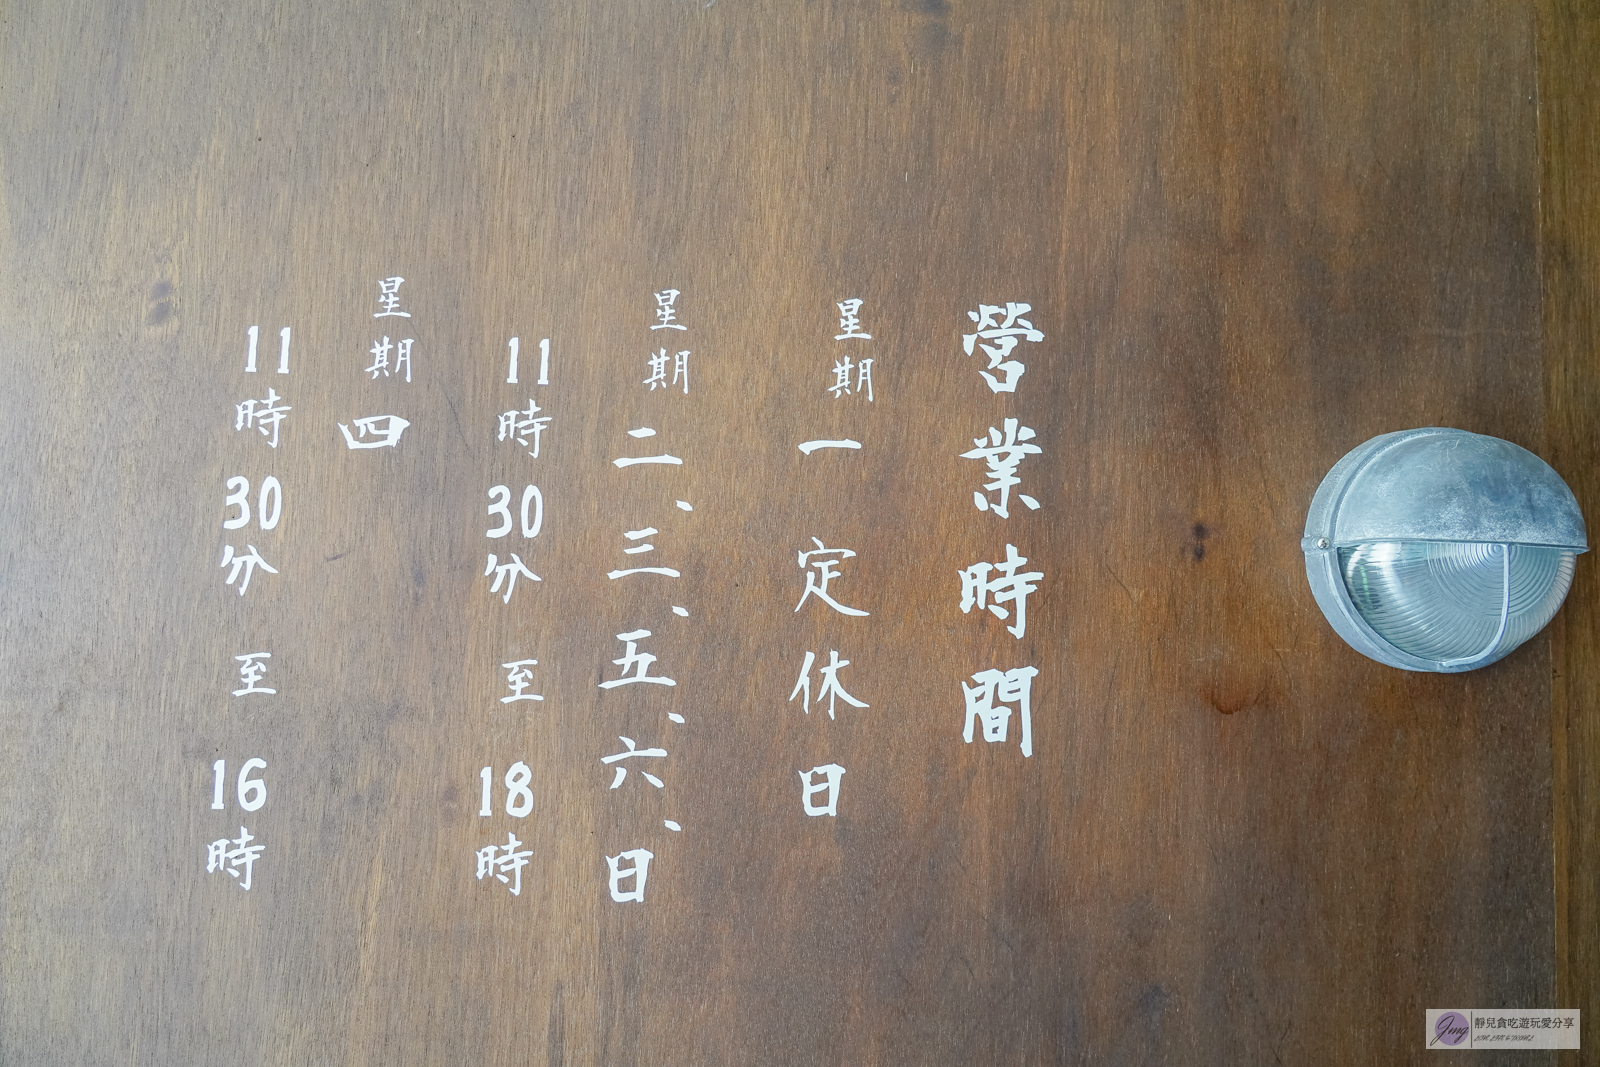 營業時間
星期一 定休日
星期二、三、五、六、日
11時30分 至 18時
星期四
11時30分 至 16時
Jmg
靜兒貪吃遊玩愛分享